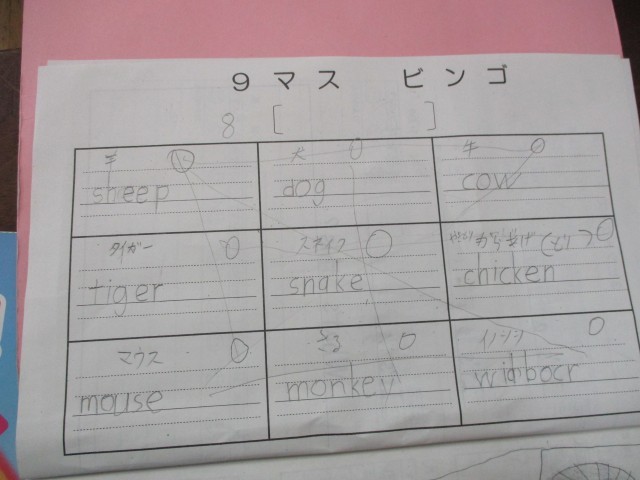 9マス ビンゴ
8 [ ]
羊
sheep
犬
dog
牛
cow
タイガー
tiger
スネイク
snake
chicken
マウス
mouse
さる
monkey
イノシシ
widbocr